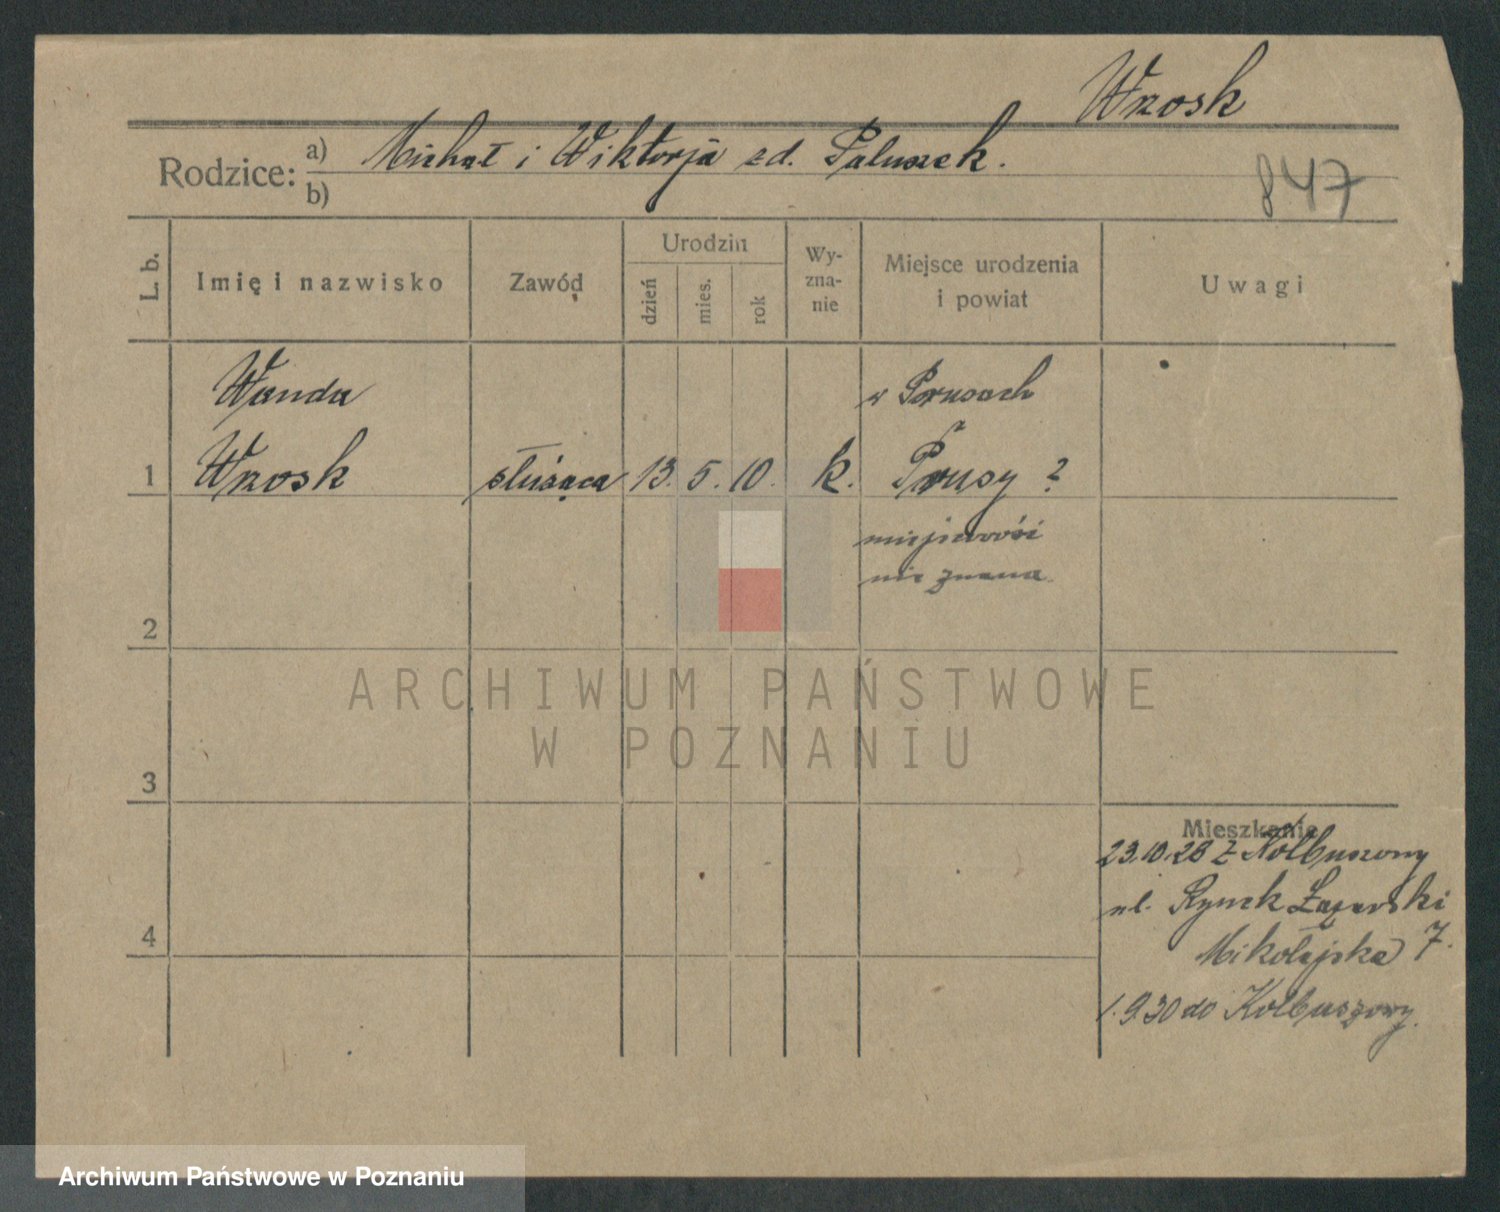 Wrosk
Rodzice: a) Michał i Wiktorja zd. Paluszek.
b)
847
L. b. Imię i nazwisko Zawód Urodzin dzień mies. rok Wy-zna-nie Miejsce urodzenia i powiat Uwagi
Wanda w Prusach
1 Wrosk służąca 13. 5. 10. k. Prusy ?
miejscowość
nie znana
2
3
4
Mieszkanie
23.10.28 z Kolbuszowy
ul. Rynek Łazarski
Mikołajska 7.
1.9.30 do Kolbuszowy.
ARCHIWUM PAŃSTWOWE
W POZNANIU
Archiwum Państwowe w Poznaniu